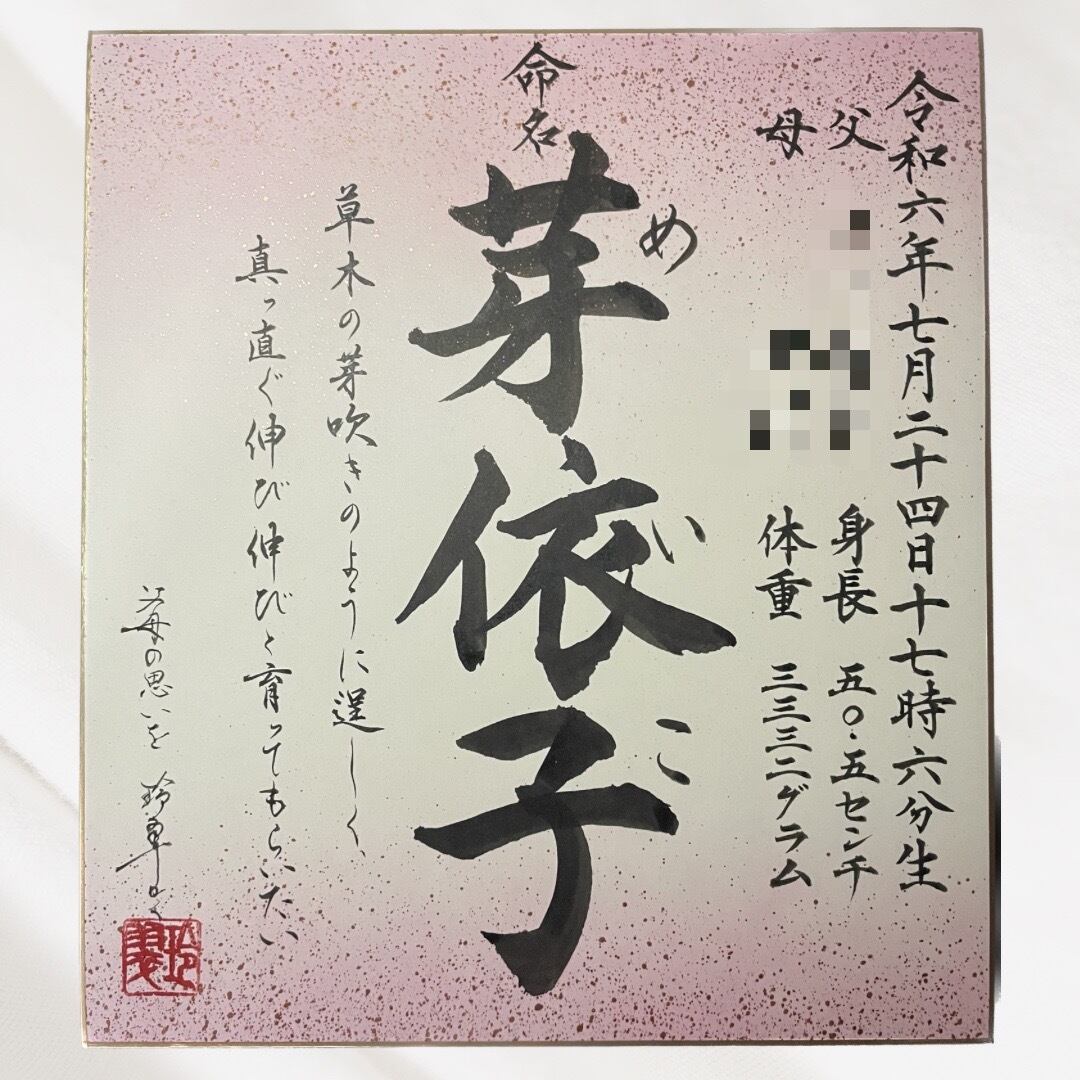 令和六年七月二十四日十七時六分生
父
母
身長 五〇.五センチ
体重 三三三二グラム
命名
芽依子
めいこ
草木の芽吹きのように逞しく
真っ直ぐ伸び伸びと育ってもらいたい
父母の思いを